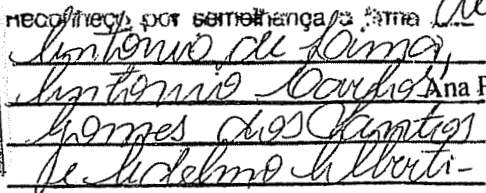 Reconheço por semelhança a firma de
Antonio de Lima,
Antonio Carlos Ana P
Gomes dos Santos
e Adelmo Alberti-